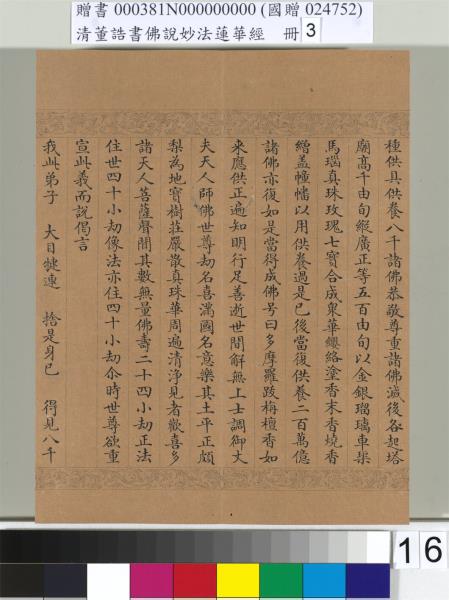 贈書 000381N000000000 (國贈 024752)
清董誥書佛說妙法蓮華經 冊 3
種供具供養八千諸佛恭敬尊重諸佛滅後各起塔
廟高千由旬縱廣正等五百由旬以金銀瑠璃車𤦲
馬瑙真珠玫瑰七寶合成眾華纓絡塗香末香燒香
繒盖幢幡以用供養過是已後當復供養二百萬億
諸佛亦復如是當得成佛号曰多摩羅跋栴檀香如
來應供正遍知明行足善逝世間解無上士調御丈
夫天人師佛世尊劫名喜滿國名意樂其土平正頗
梨為地寶樹莊嚴散真珠華周遍清淨見者歡喜多
諸天人菩薩聲聞其數無量佛壽二十四小劫正法
住世四十小劫像法亦住四十小劫尒時世尊欲重
宣此義而說偈言
我此弟子 大目揵連 捨是身已 得見八千
16